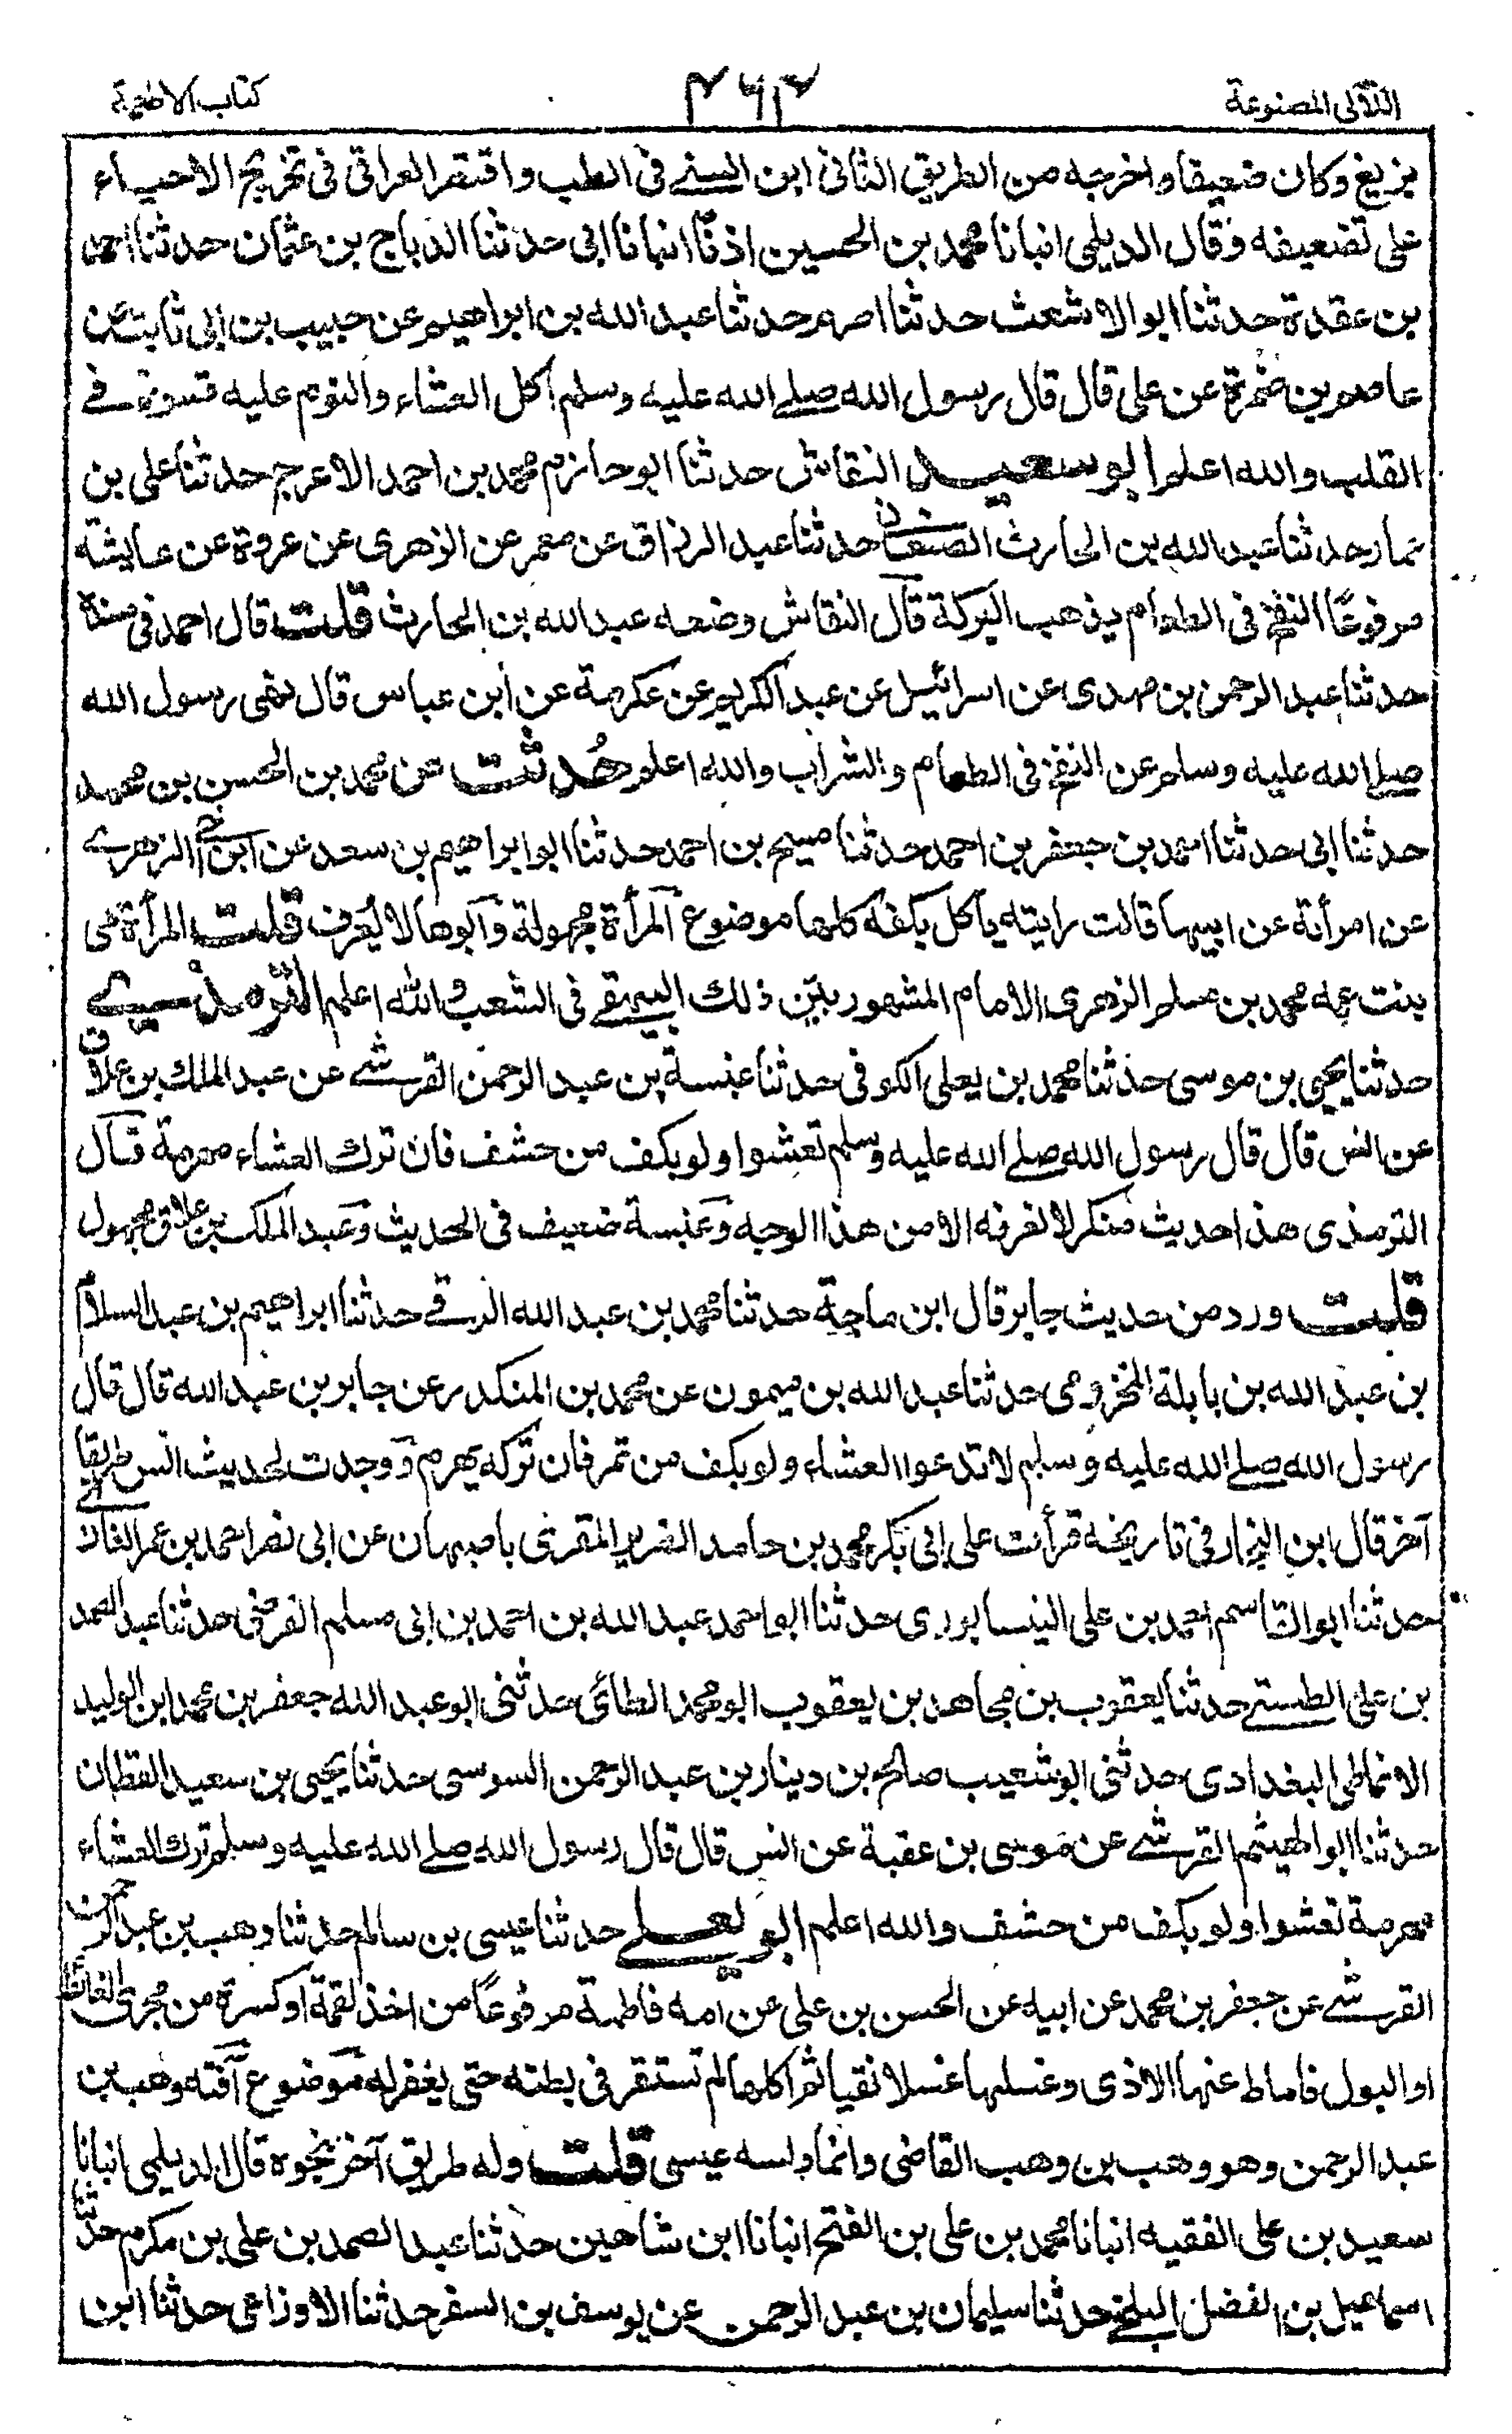 اللآلى المصنوعة
كتاب الاطعمة
بزيغ وكان ضعيفا واخرجه من الطريق الثانى ابن السنے فى الطب واقتصر العراقى فى تخريج الاحياء
على تضعيفه وقال الديلمى انبانا محمد بن الحسين اذنًا انبانا ابى حدثنا الدباج بن عثمان حدثنا احمد
بن عقدة حدثنا ابو الاشعث حدثنا اصرم حدثنا عبد الله بن ابراهيم عن حبيب بن ابى ثابت عن
عاصم بن ضمرة عن على قال قال رسول الله صلے الله عليه وسلم اكل العشاء والنوم عليه قسوة فے
القلب والله اعلم ابو سعيد النقاش حدثنا ابو حازم محمد بن احمد الاعرج حدثنا على بن
عمار حدثنا عبد الله بن الحارث الصنعانى حدثنا عبد الرزاق عن معمر عن الزهرى عن عروة عن عايشة
مرفوعًا النفخ فى الطعام يذهب البركة قال النقاش وضعه عبد الله بن الحارث قلت قال احمد فى مسنده
حدثنا عبد الرحمن بن مهدى عن اسرائيل عن عبد الكريم عن عكرمة عن ابن عباس قال نهى رسول الله
صلے الله عليه وسلم عن النفخ فى الطعام والشراب والله اعلم حُدثت عن محمد بن الحسن بن محمد
حدثنا ابى حدثنا احمد بن جعفر بن احمد حدثنا مسيح بن احمد حدثنا ابو ابراهيم بن سعد عن ابن اخى الزهرے
عن امرأة عن ابيها قالت رايته ياكل بكفه كلها موضوع المرأة مجهولة وابوها لا يُعرف قلت المرأة هى
بنت عمه محمد بن مسلم الزهرى الامام المشهور بيّن ذلك البيهقے فى الشعب والله اعلم الترمذے
حدثنا يحيى بن موسى حدثنا محمد بن يعلى الكوفى حدثنا عنبسة بن عبد الرحمن القرشے عن عبد الملك بن علاق
عن انس قال قال رسول الله صلے الله عليه وسلم تعشوا ولو بكف من حشف فان ترك العشاء مهرمة قال
الترمذى هذا حديث منكر لا نعرفه الا من هذا الوجه وعنبسة ضعيف فى الحديث وعبد الملك بن علاق مجهول
قلت ورد من حديث جابر قال ابن ماجة حدثنا محمد بن عبد الله الرقے حدثنا ابراهيم بن عبد السلام
بن عبد الله بن بابلة المخزومى حدثنا عبد الله بن ميمون عن محمد بن المنكدر عن جابر بن عبد الله قال قال
رسول الله صلے الله عليه وسلم لا تدعوا العشاء ولو بكف من تمر فان تركه يهرم ووجدت لحديث انس طريقا
آخر قال ابن النجار فى تاريخه قرأت على ابى بكر محمد بن حامد الضرير المقرئ باصبهان عن ابى نصر احمد بن عمر الغازى
حدثنا ابو القاسم احمد بن على النيسابورى حدثنا ابو احمد عبد الله بن احمد بن ابى مسلم الفرضى حدثنا عبد الصمد
بن على الطستے حدثنا يعقوب بن مجاهد بن يعقوب ابو محمد الطائى حدثنى ابو عبد الله جعفر بن محمد ابن الوليد
الانماطى البغدادى حدثنى ابو شعيب صالح بن دينار بن عبد الرحمن السوسى حدثنا يحيى بن سعيد القطان
حدثنا ابو الهيثم القرشے عن موسى بن عقبة عن انس قال قال رسول الله صلے الله عليه وسلم ترك العشاء
مهرمة تعشوا ولو بكف من حشف والله اعلم ابو يعلے حدثنا عيسى بن سالم حدثنا وهب بن عبد الرحمن
القرشے عن جعفر بن محمد عن ابيه عن الحسن بن على عن امه فاطمة مرفوعًا من اخذ لقمة او كسرة من مجرى الغائط
او البول فاماط عنها الاذى وغسلها غسلا نقيا ثم اكلها لم تستقر فى بطنه حتى يغفر له موضوع آفته وهب بن
عبد الرحمن وهو وهب بن وهب القاضى وانما دلسه عيسى قلت وله طريق آخر نحوه قال الديلمى انبانا
سعيد بن على الفقيه انبانا محمد بن على بن الفتح انبانا ابن شاهين حدثنا عبد الصمد بن على بن مكرم حدثنا
اسماعيل بن الفضل البلخے حدثنا سليمان بن عبد الرحمن عن يوسف بن السفر حدثنا الاوزاعى حدثنا ابن